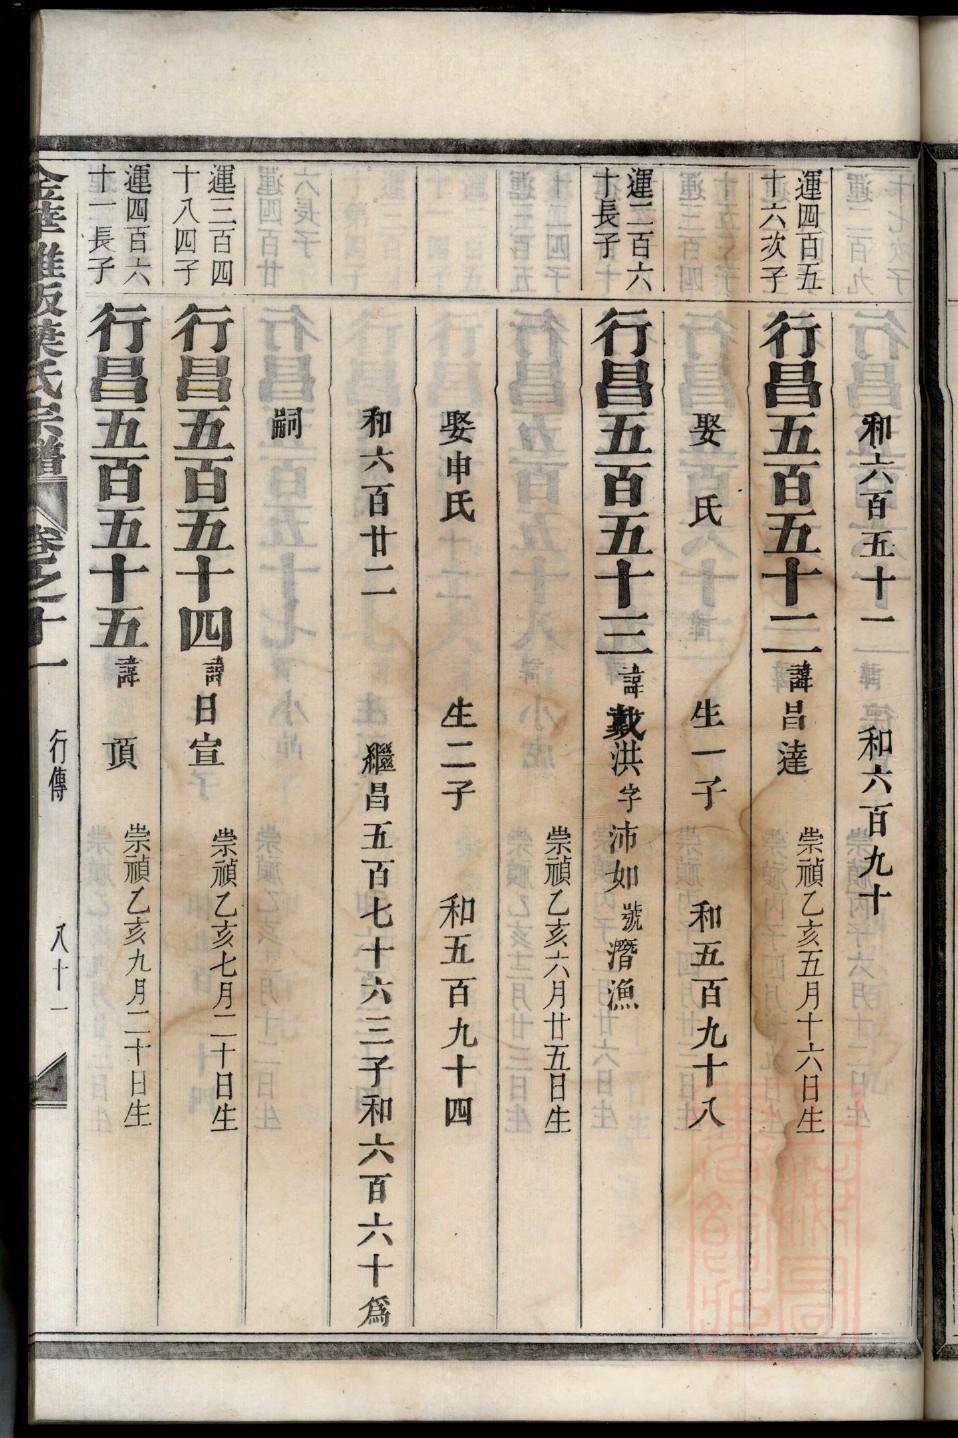 和六百五十一　和六百九十
運四百五十六次子
行昌五百五十二 諱昌達 崇禎乙亥五月十六日生
娶　氏　生一子　和五百九十八
運二百六十長子
行昌五百五十三 諱戴洪 字沛如 號潛漁 崇禎乙亥六月廿五日生
娶申氏　生二子　和五百九十四
和六百廿二　繼昌五百七十六三子和六百六十爲
嗣
運三百四十八四子
行昌五百五十四 諱日宣 崇禎乙亥七月二十日生
運四百六十一長子
行昌五百五十五 諱頂 崇禎乙亥九月二十日生
葉氏宗譜 卷之十一 行傳 八十一